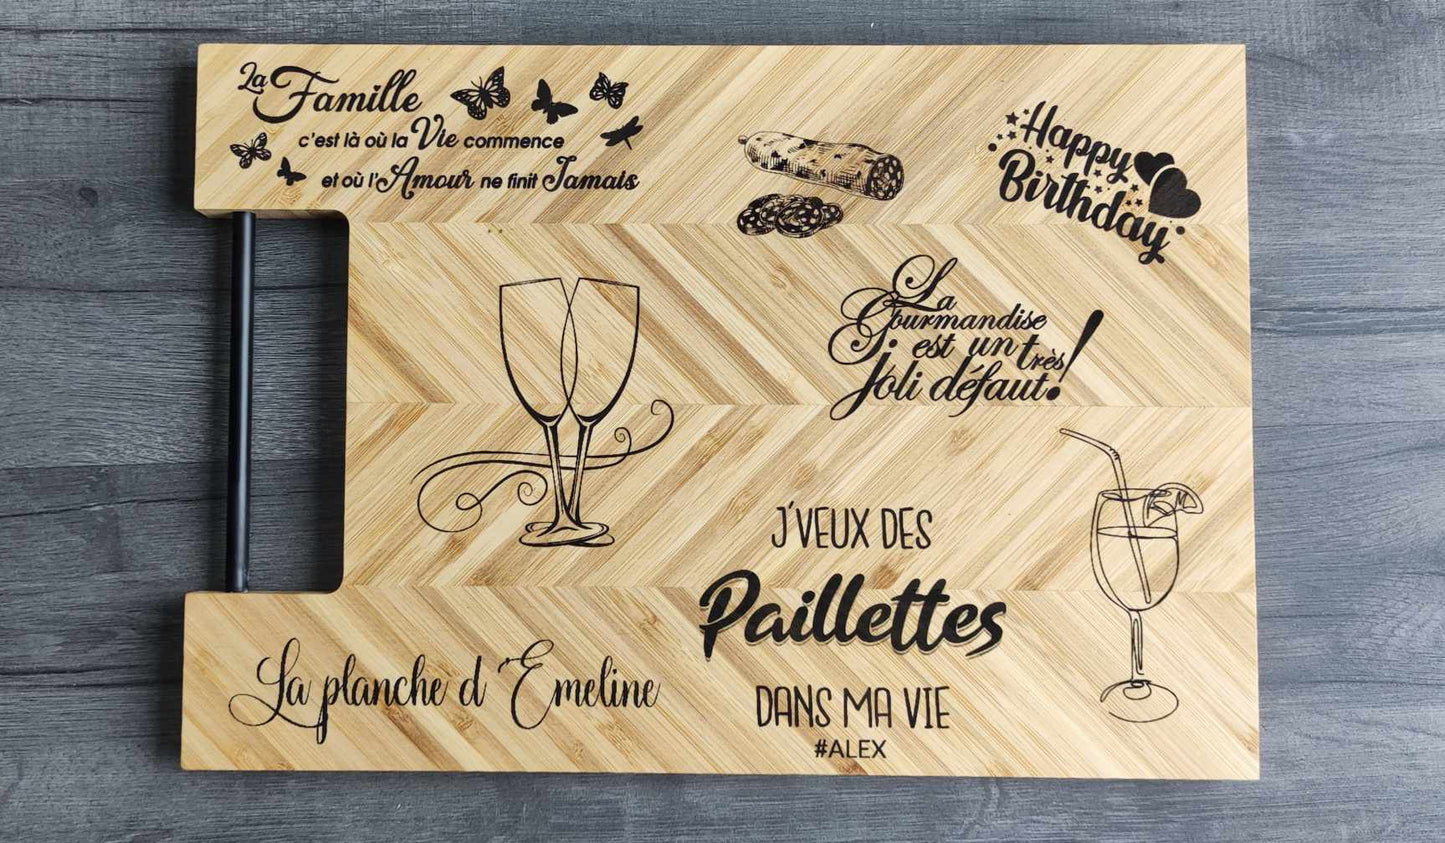 La Famille
c'est là où la Vie commence
et où l'Amour ne finit Jamais
Happy
Birthday
La
Gourmandise
est un très
Joli défaut!
J'VEUX DES
Paillettes
DANS MA VIE
#ALEX
La planche d'Emeline